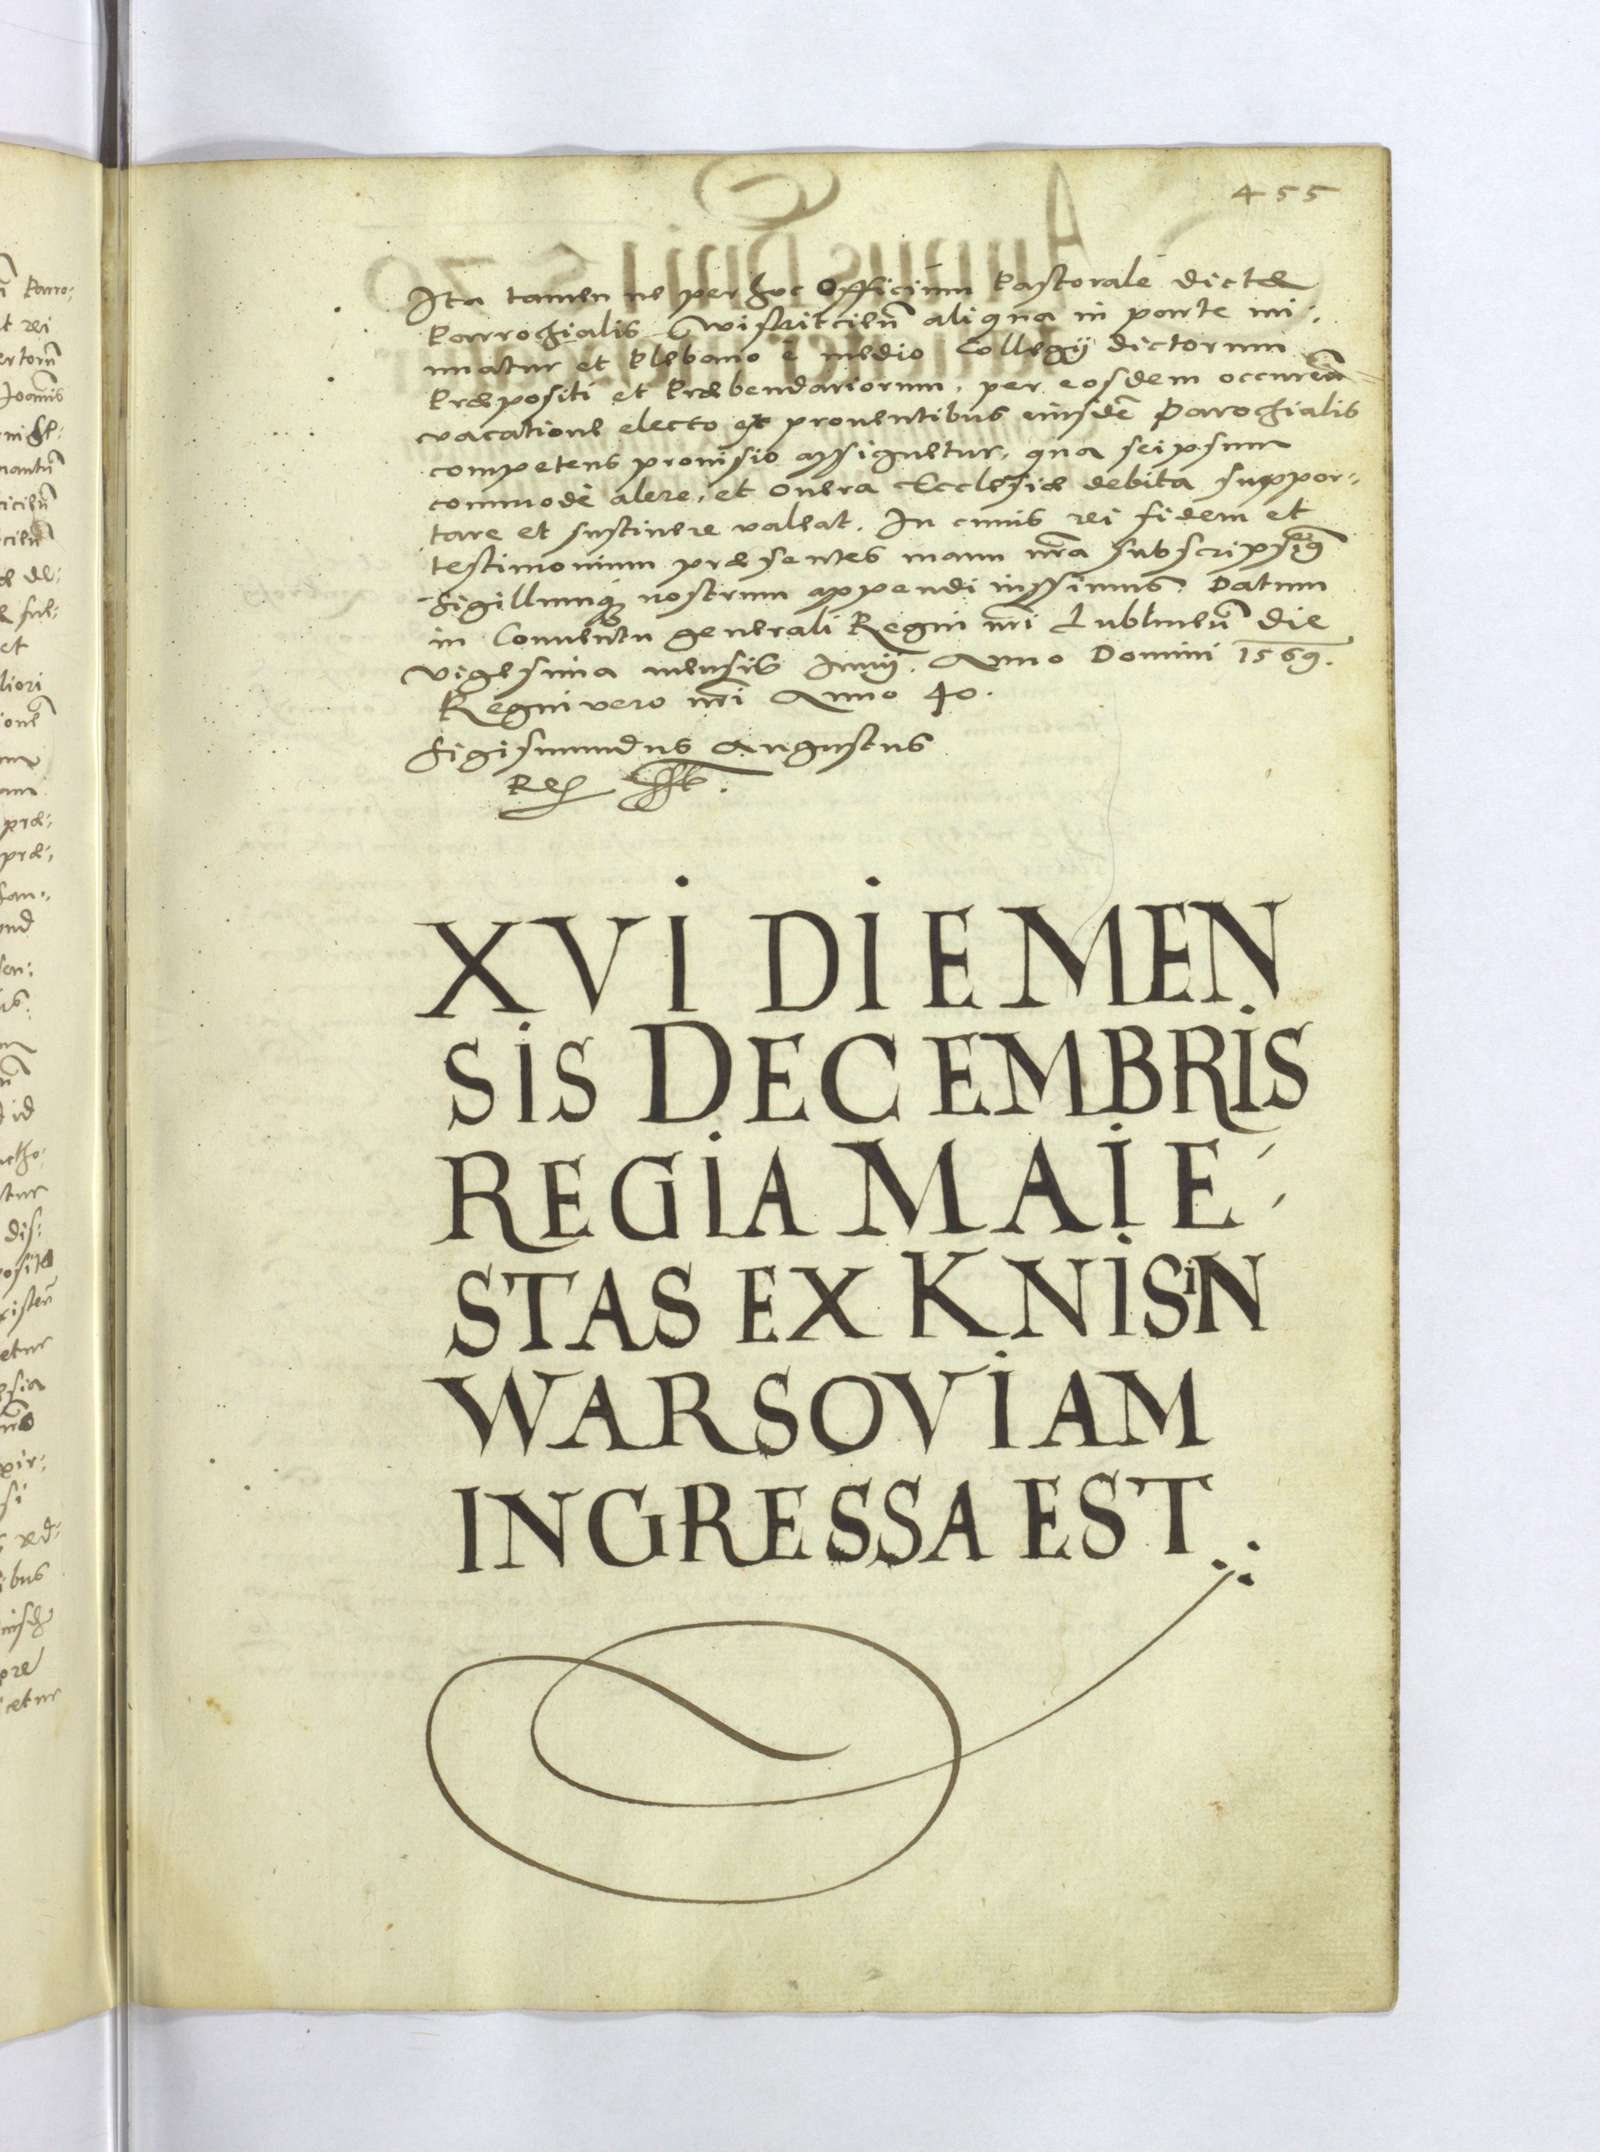 455
Ita tamen ne per hoc Officium Pastorale dictæ
Parrochialis Wislitcieñ aliqua in parte mi:
nuatur et Plebano è medio Collegij dictorum
Præpositi et Præbendariorum, per eosdem occureñ
vacatione electo ex prouentibus eiusdẽ Parochialis
competens prouisio assignetur, qua seipsum
commodè alere, et Onera Ecclesiæ debita suppor:
tare et sustinere valeat. In cuius rei fidem et
testimonium præsentes manu nrã subscripsimus
Sigillumq nostrum appendi iussimus. Datum
in Conuentu generali Regni nrĩ Lublineñ die
vigesima mensis Junij. Anno Domini 1569.
Regni vero nrĩ Anno 40.
Sigismundus Augustus
Rex sst.
XVI DIE MEN
SIS DECEMBRIS
REGIA MAIE:
STAS EX KNISIN
WARSOVIAM
INGRESSA EST